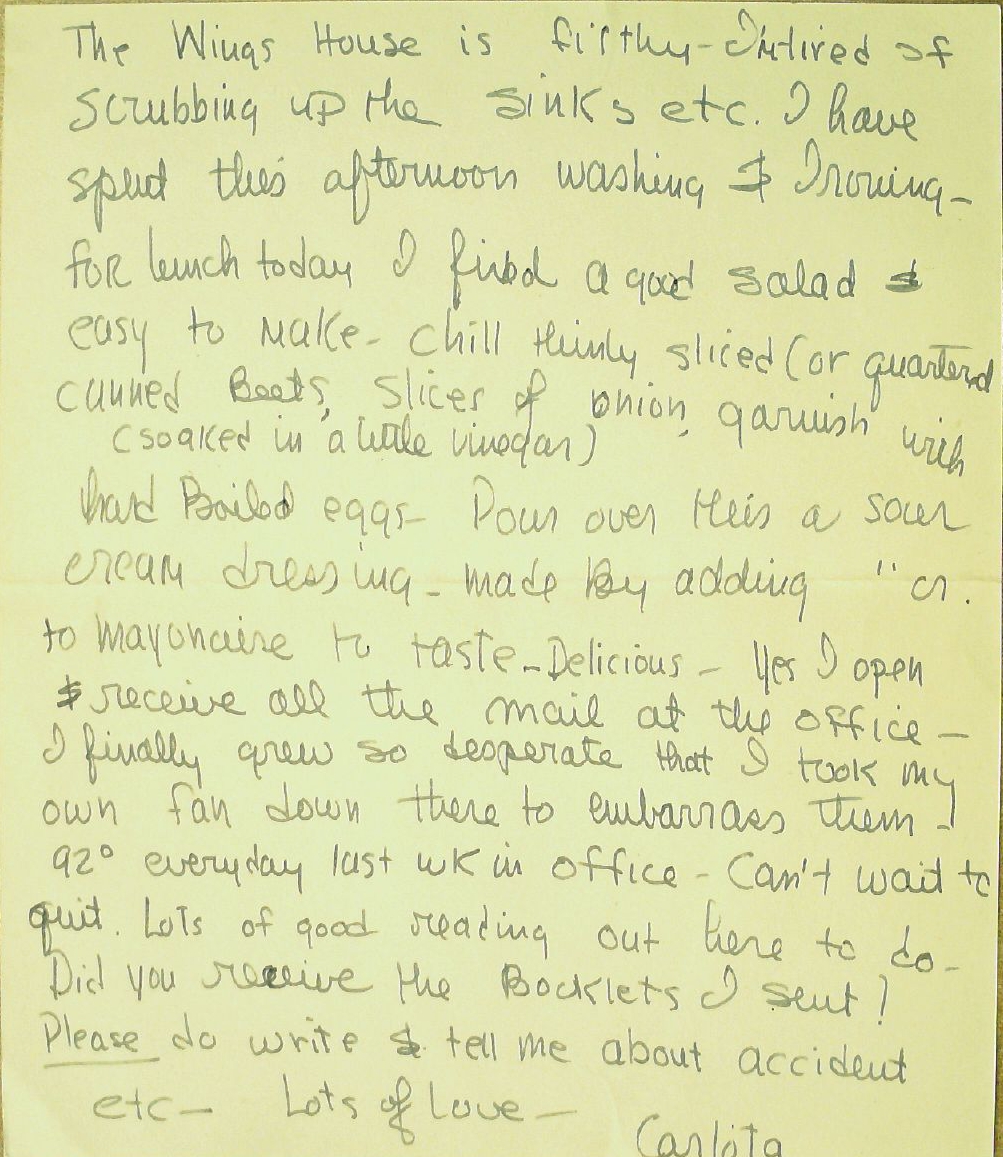 The Wings House is filthy - I'm tired of
scrubbing up the sinks etc. I have
spent this afternoon washing & Ironing -
for lunch today I fixed a good salad &
easy to make - Chill thinly sliced (or quartered
canned Beets, slices of onion, garnish with
(soaked in a little vinegar)
hard Boiled eggs - Pour over this a sour
cream dressing - made By adding " cr.
to mayonaise to taste - Delicious - Yes I open
& receive all the mail at the office -
I finally grew so desperate that I took my
own fan down there to embarrass them -!
92° everyday last wk in office - Can't wait to
quit. Lots of good reading out here to do -
Did you receive the Booklets I sent?
Please do write & tell me about accident
etc - Lots of Love -
Carlota